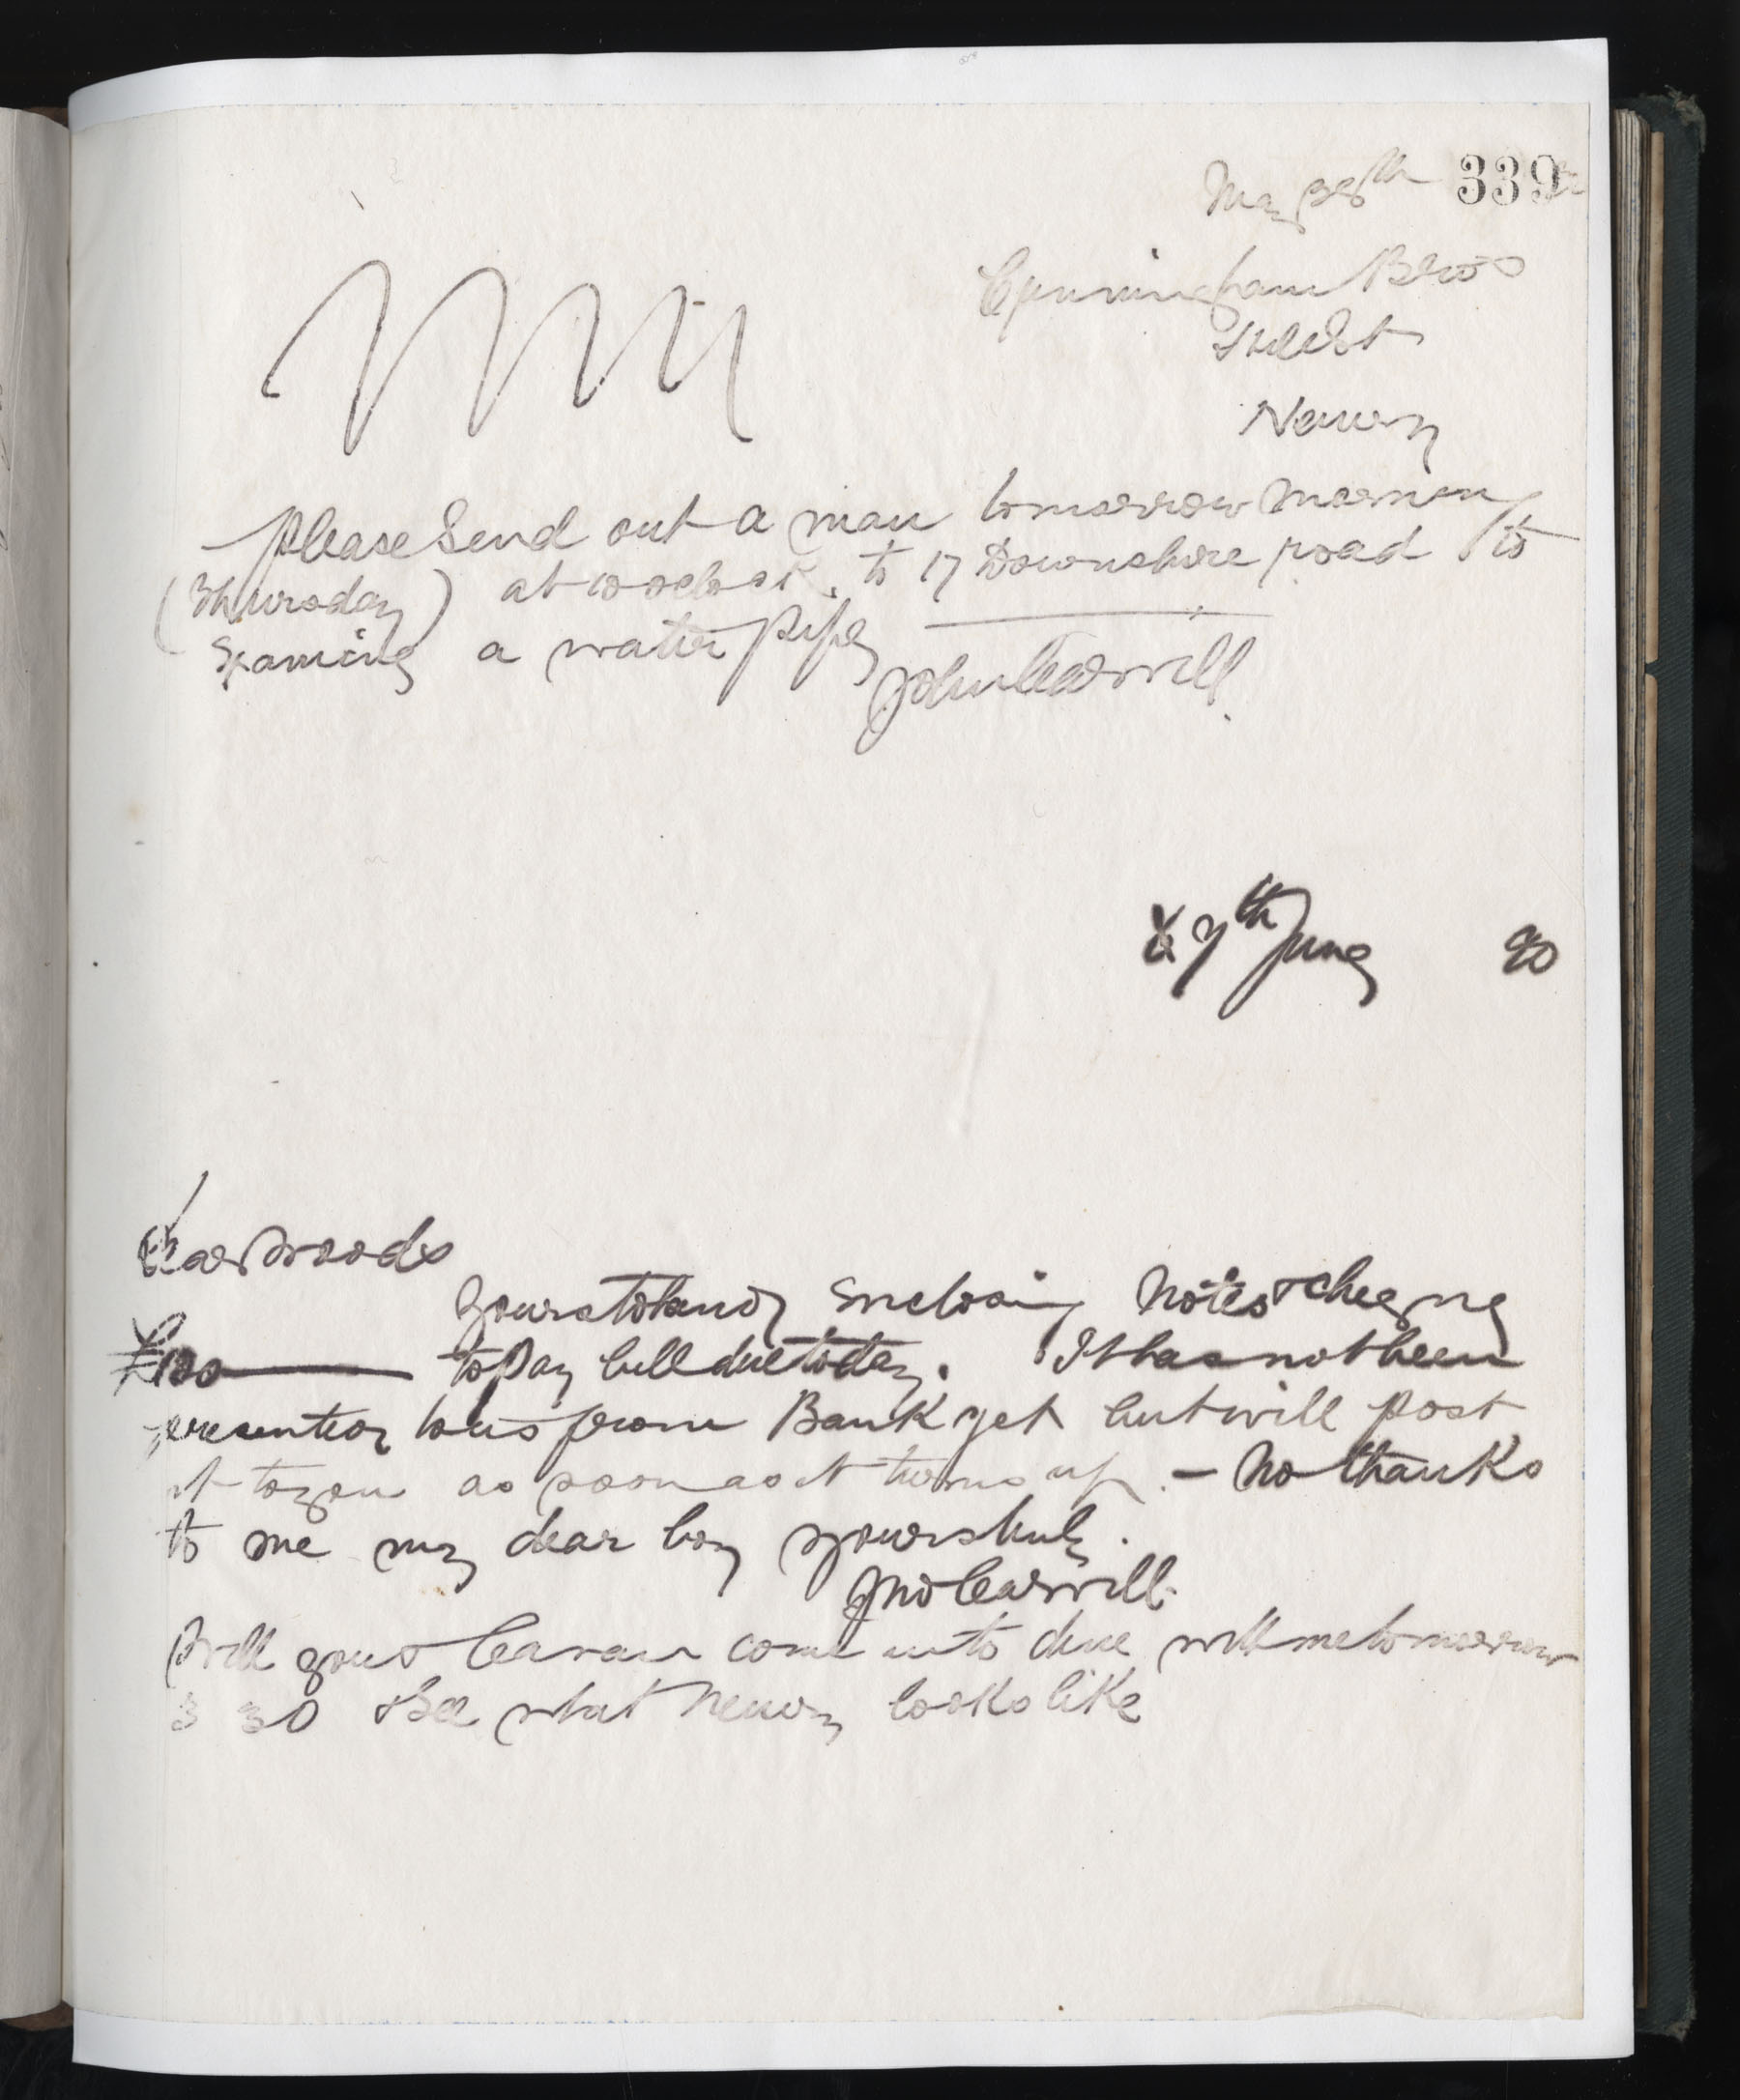 May 28th 339
Cunningham Bros
Hill St
Newry
Please Send out a man tomorrow morning
(Thursday) at 10 oclock. to 17 Downshire road to
Examine a water pipe
John Carvill
7th June 90
Dear Woods
Yours to hand Enclosing Notes & cheque
£100 to pay bill due today. It has not been
presented to us from Bank yet but will post
it to you as soon as it turns up. - No thanks
to me my dear boy yours truly.
Jno Carvill.
Will you & Cavan come in to dine with me tomorrow
3 30 & see what Newry looks like